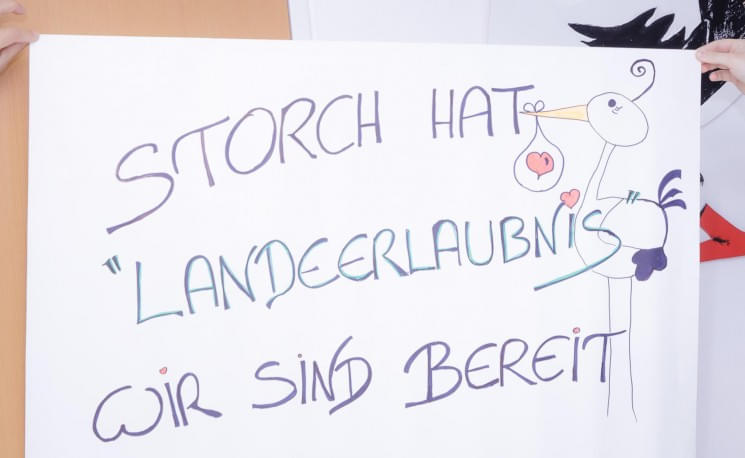 STORCH HAT
"LANDEERLAUBNiS"
WiR SiND BEREiT